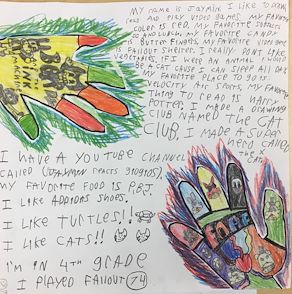 MY NAME IS JAYMIN I LIKE TO DRAW
AND PLAY VIDEO GAMES. MY FAVORITE
COLOR IS RED. MY FAVORITE SUBJECT
IS LUNCH. MY FAVORITE CANDY
IS BUTTER FINGERS. MY FAVORITE VIDEOGAME
IS FALLOUT SHELTER. I REALLY DONT LIKE
VEGETABLES. IF I WERE AN ANIMAL I WOULD
BE A CAT CAUSE I CAN SLEEP ALL DAY.
MY FAVORITE PLACE TO GO IS
VELOCITY AIR SPORTS. MY FAVORITE
THING TO READ IS HARRY
POTTER. I MADE A DRAWING
CLUB NAMED THE CAT
CLUB. I MADE A SUPER
HERO CALLED
THE X
CATS
I HAVE A YOUTUBE CHANNEL
CALLED (JAYMIN REACTS
MY FAVORITE FOOD IS P&J.
I LIKE ADDIDAS SHOES.
I LIKE TURTLES!!
I LIKE CATS!!
I'M IN 4TH GRADE
I PLAYED FALLOUT 74